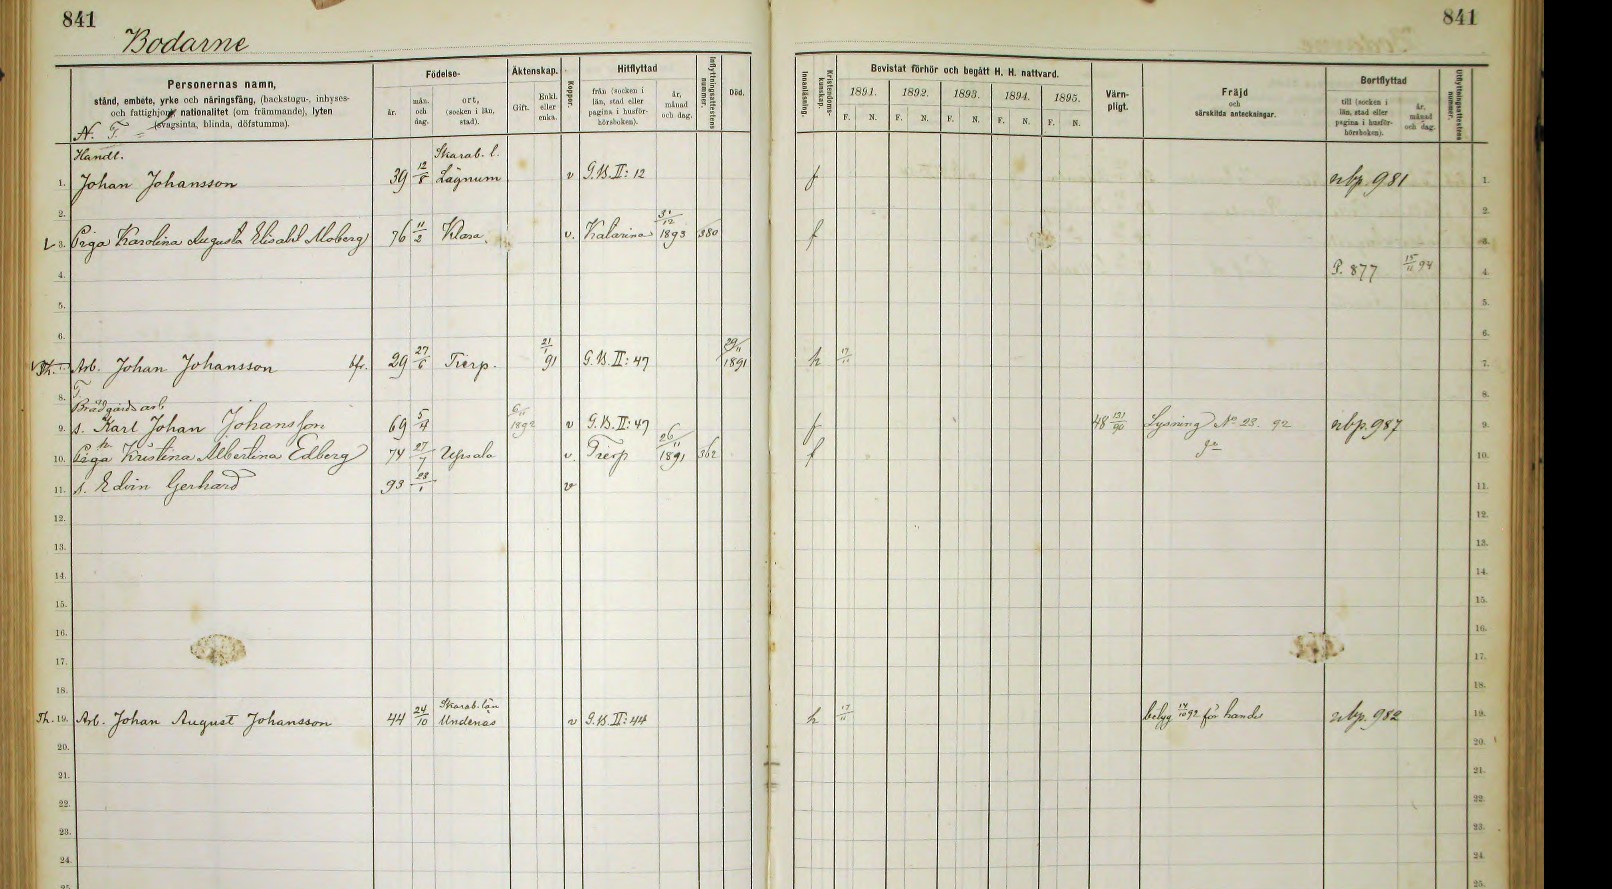 841
Bodarne
841
Personernas namn,
stånd, embete, yrke och näringsfång, (backstugu-, inhyses-
och fattighjon), nationalitet (om främmande), lyten
(svagsinta, blinda, döfstumma).
N. F.
Födelse-
år.
mån. och dag.
ort, (socken i län, stad).
Äktenskap.
Gift.
Enkl. eller enka.
Koppor.
Hitflyttad
från (socken i län, stad eller pagina i husför-hörsboken).
år, månad och dag.
Inflyttningsattestens nummer.
Död.
Innanläsning.
Kristendoms-kunskap.
Bevistat förhör och begått H. H. nattvard.
1891. 1892. 1893. 1894. 1895.
F. N. F. N. F. N. F. N. F. N.
Värn-pligt.
Fräjd
och
särskilda anteckningar.
Bortflyttad
till (socken i län, stad eller pagina i husför-hörsboken).
år, månad och dag.
Utflyttningsattestens nummer.
Handl. Skarab. l.
1. Johan Johansson 39 12/8 Lägnum v G.B. II: 12 f nbp. 981 1.
2. 2.
3. Piga Karolina Augusta Elisabet Moberg 76 11/2 Klara v. Katarina 31/12 1893 380 f 3.
4. P. 877 15/11 94 4.
5. 5.
6. 6.
7. Arb. Johan Johansson bfr. 29 27/6 Tierp. 21/1 91 G.B. II: 47 29/11 1891 h 17/11 7.
8. 8.
Brädgårds arb.
9. s. Karl Johan Johansson 69 5/4 1892 v G.B. II: 47 f 48 131/90 Lysning No 23. 92 nbp. 987 9.
10. Piga Kristina Albertina Edberg 74 27/7 Upsala v. Tierp 26/11 1891 362 f 10.
11. s. Edvin Gerhard 93 28/1 v 11.
12. 12.
13. 13.
14. 14.
15. 15.
16. 16.
17. 17.
18. 18.
Skarab. län
Th. 19. Arb. Johan August Johansson 44 24/10 Undenäs v G.B. II: 44 h 17/11 betyg 14/10 92 för handen nbp. 982 19.
20. 20.
21. 21.
22. 22.
23. 23.
24. 24.
25. 25.